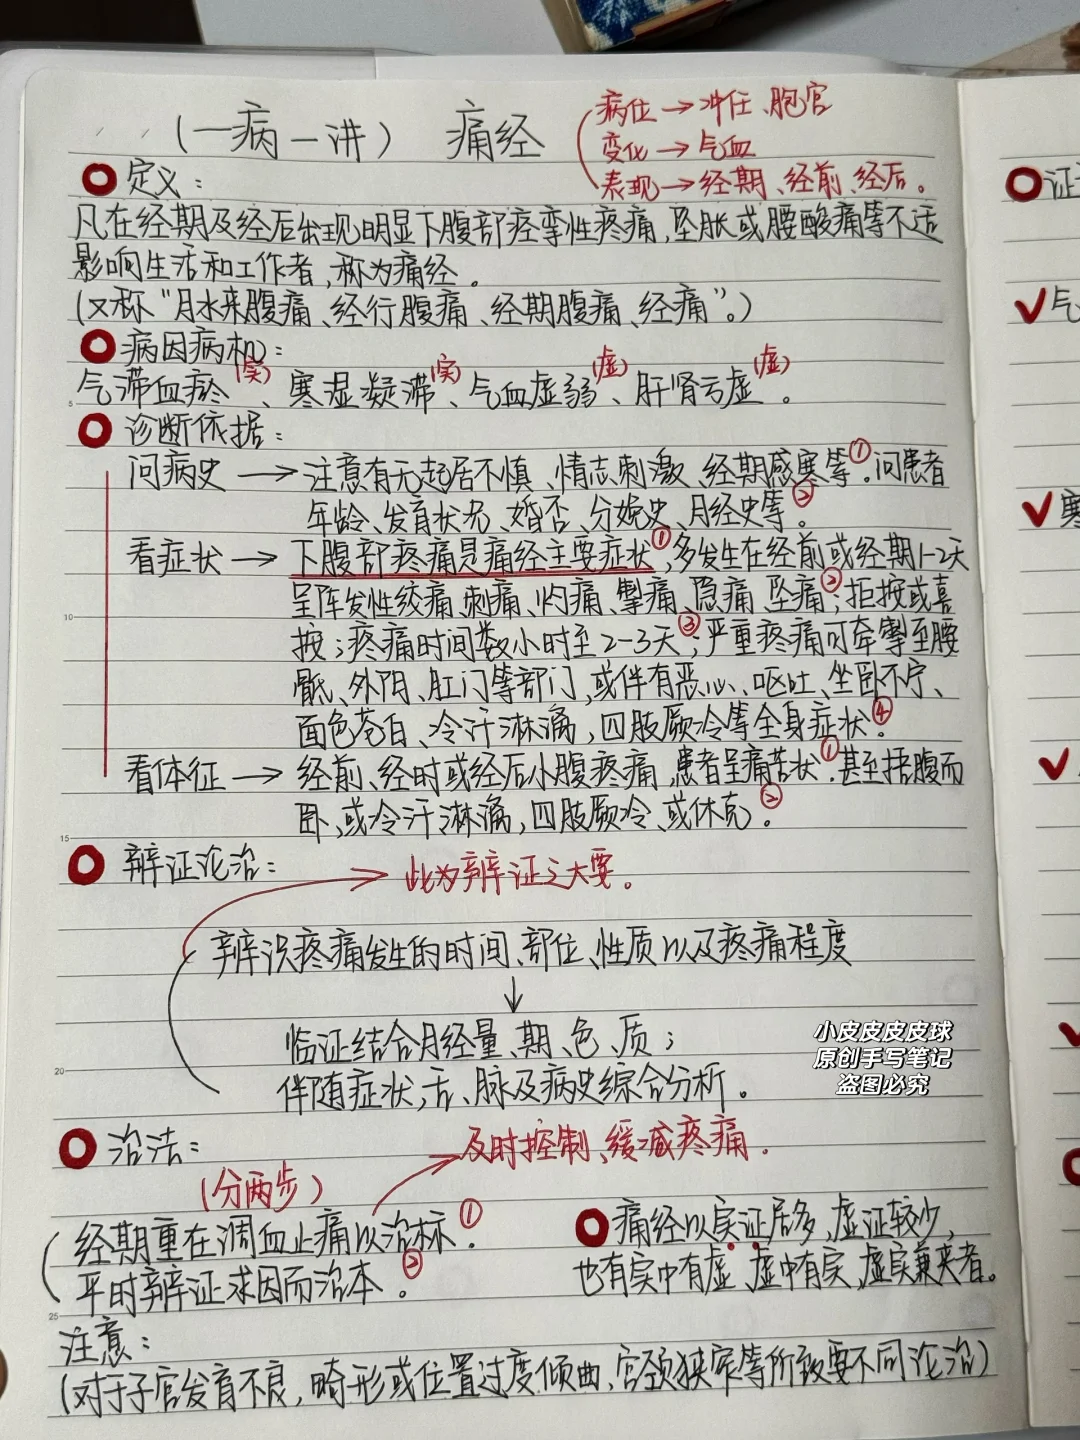 (一病一讲) 痛经
病位→冲任、胞宫
变化→气血
表现→经期、经前、经后。
定义:
凡在经期及经后出现明显下腹部痉挛性疼痛,坠胀或腰酸痛等不适
影响生活和工作者,称为痛经。
(又称"月水来腹痛、经行腹痛、经期腹痛、经痛"。)
病因病机:
气滞血瘀(实)、寒湿凝滞(实)、气血虚弱(虚)、肝肾亏虚(虚)。
诊断依据:
问病史→注意有无起居不慎、情志刺激、经期感寒等①.问患者
年龄、发育状况、婚否、分娩史、月经史等②。
看症状→下腹部疼痛是痛经主要症状①,多发生在经前或经期1-2天
呈阵发性绞痛、刺痛、灼痛、掣痛、隐痛、坠痛②;拒按或喜
按;疼痛时间数小时至2-3天③;严重疼痛可牵掣至腰
骶、外阴、肛门等部门,或伴有恶心、呕吐、坐卧不宁、
面色苍白、冷汗淋漓,四肢厥冷等全身症状④。
看体征→经前、经时或经后小腹疼痛,患者呈痛苦状①.甚至捂腹而
卧,或冷汗淋漓,四肢厥冷、或休克②。
辨证论治:
此为辨证之大要。
辨识疼痛发生的时间、部位、性质以及疼痛程度
↓
临证结合月经量、期、色、质;
伴随症状,舌、脉及病史综合分析。
小皮皮皮皮球
原创手写笔记
盗图必究
治法:
及时控制、缓减疼痛.
(分两步)
经期重在调血止痛以治标①.
平时辨证求因而治本②。
痛经以实证居多,虚证较少,
也有实中有虚、虚中有实,虚实兼夹者。
注意:
(对于子宫发育不良,畸形或位置过度倾曲,宫颈狭窄等所致要不同论治)
证
气
寒